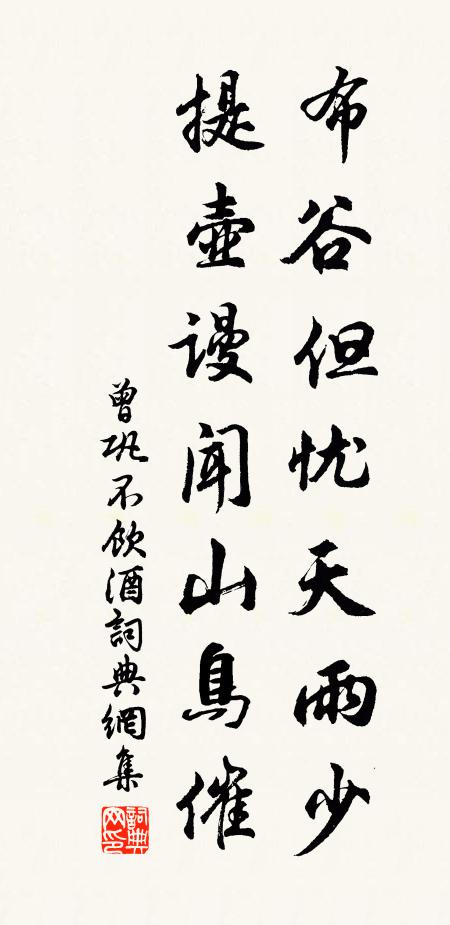 布谷但忧天雨少
提壶谩闻山鸟催
曾巩不饮酒詞典網集
詞典网印